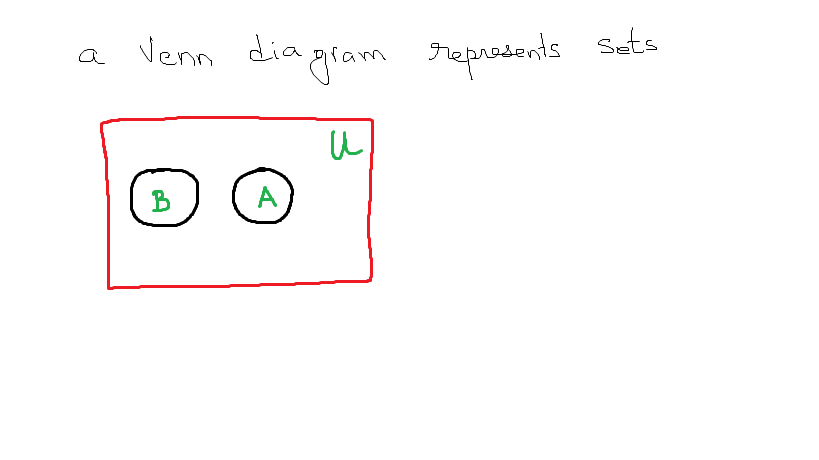 a Venn diagram represents sets
U
B A